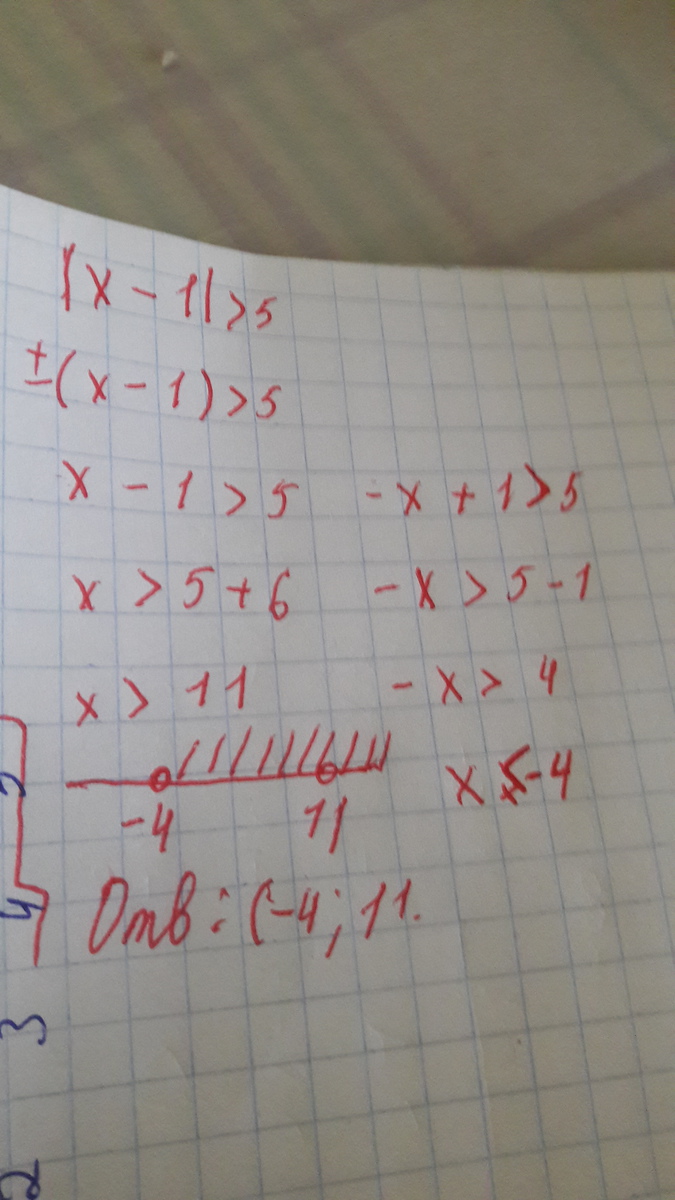 |x - 1| > 5
±(x - 1) > 5
x - 1 > 5 -x + 1 > 5
x > 5 + 6 -x > 5 - 1
x > 11 -x > 4
x < -4
-4 11
Отв: (-4; 11.
3
2